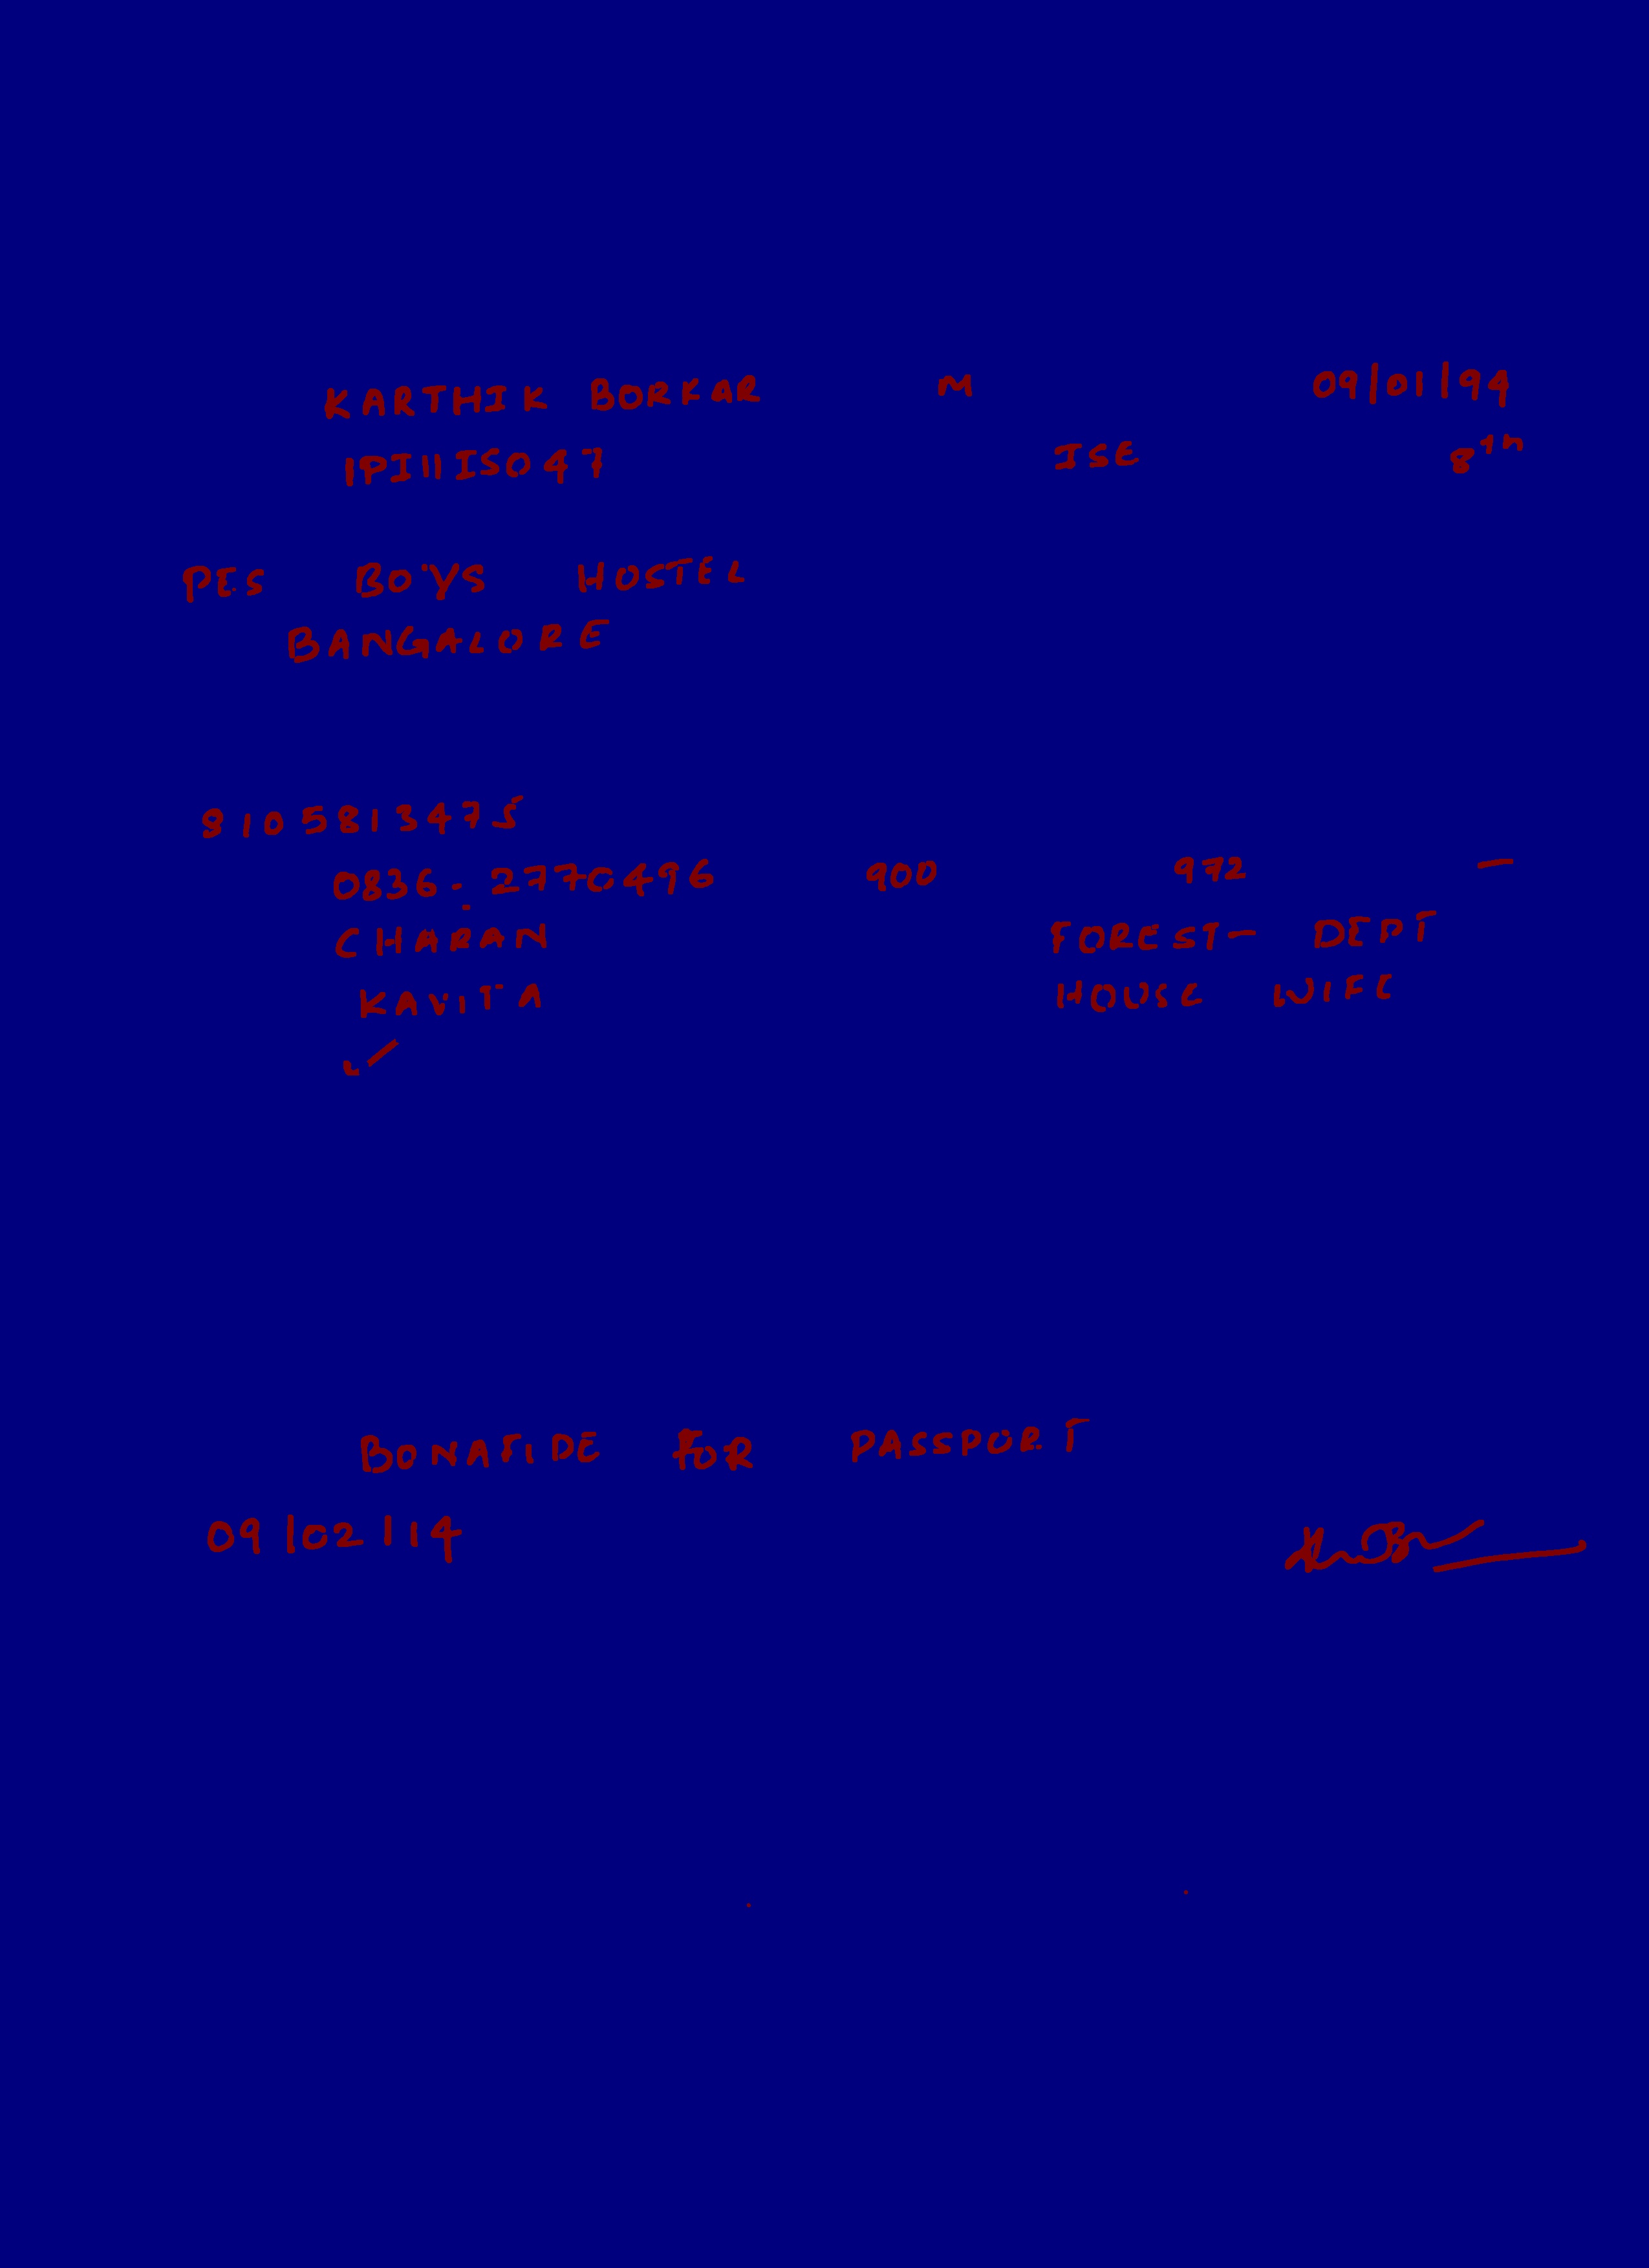 KARTHIK BORKAR M 09/01/94
1PI11IS047 ISE 8th
PES BOYS HOSTEL
BANGALORE
8105813475
0836-2770496 900 972 —
CHARAN FOREST DEPT
KAVITA HOUSE WIFE
✓
BONAFIDE FOR PASSPORT
09/02/14